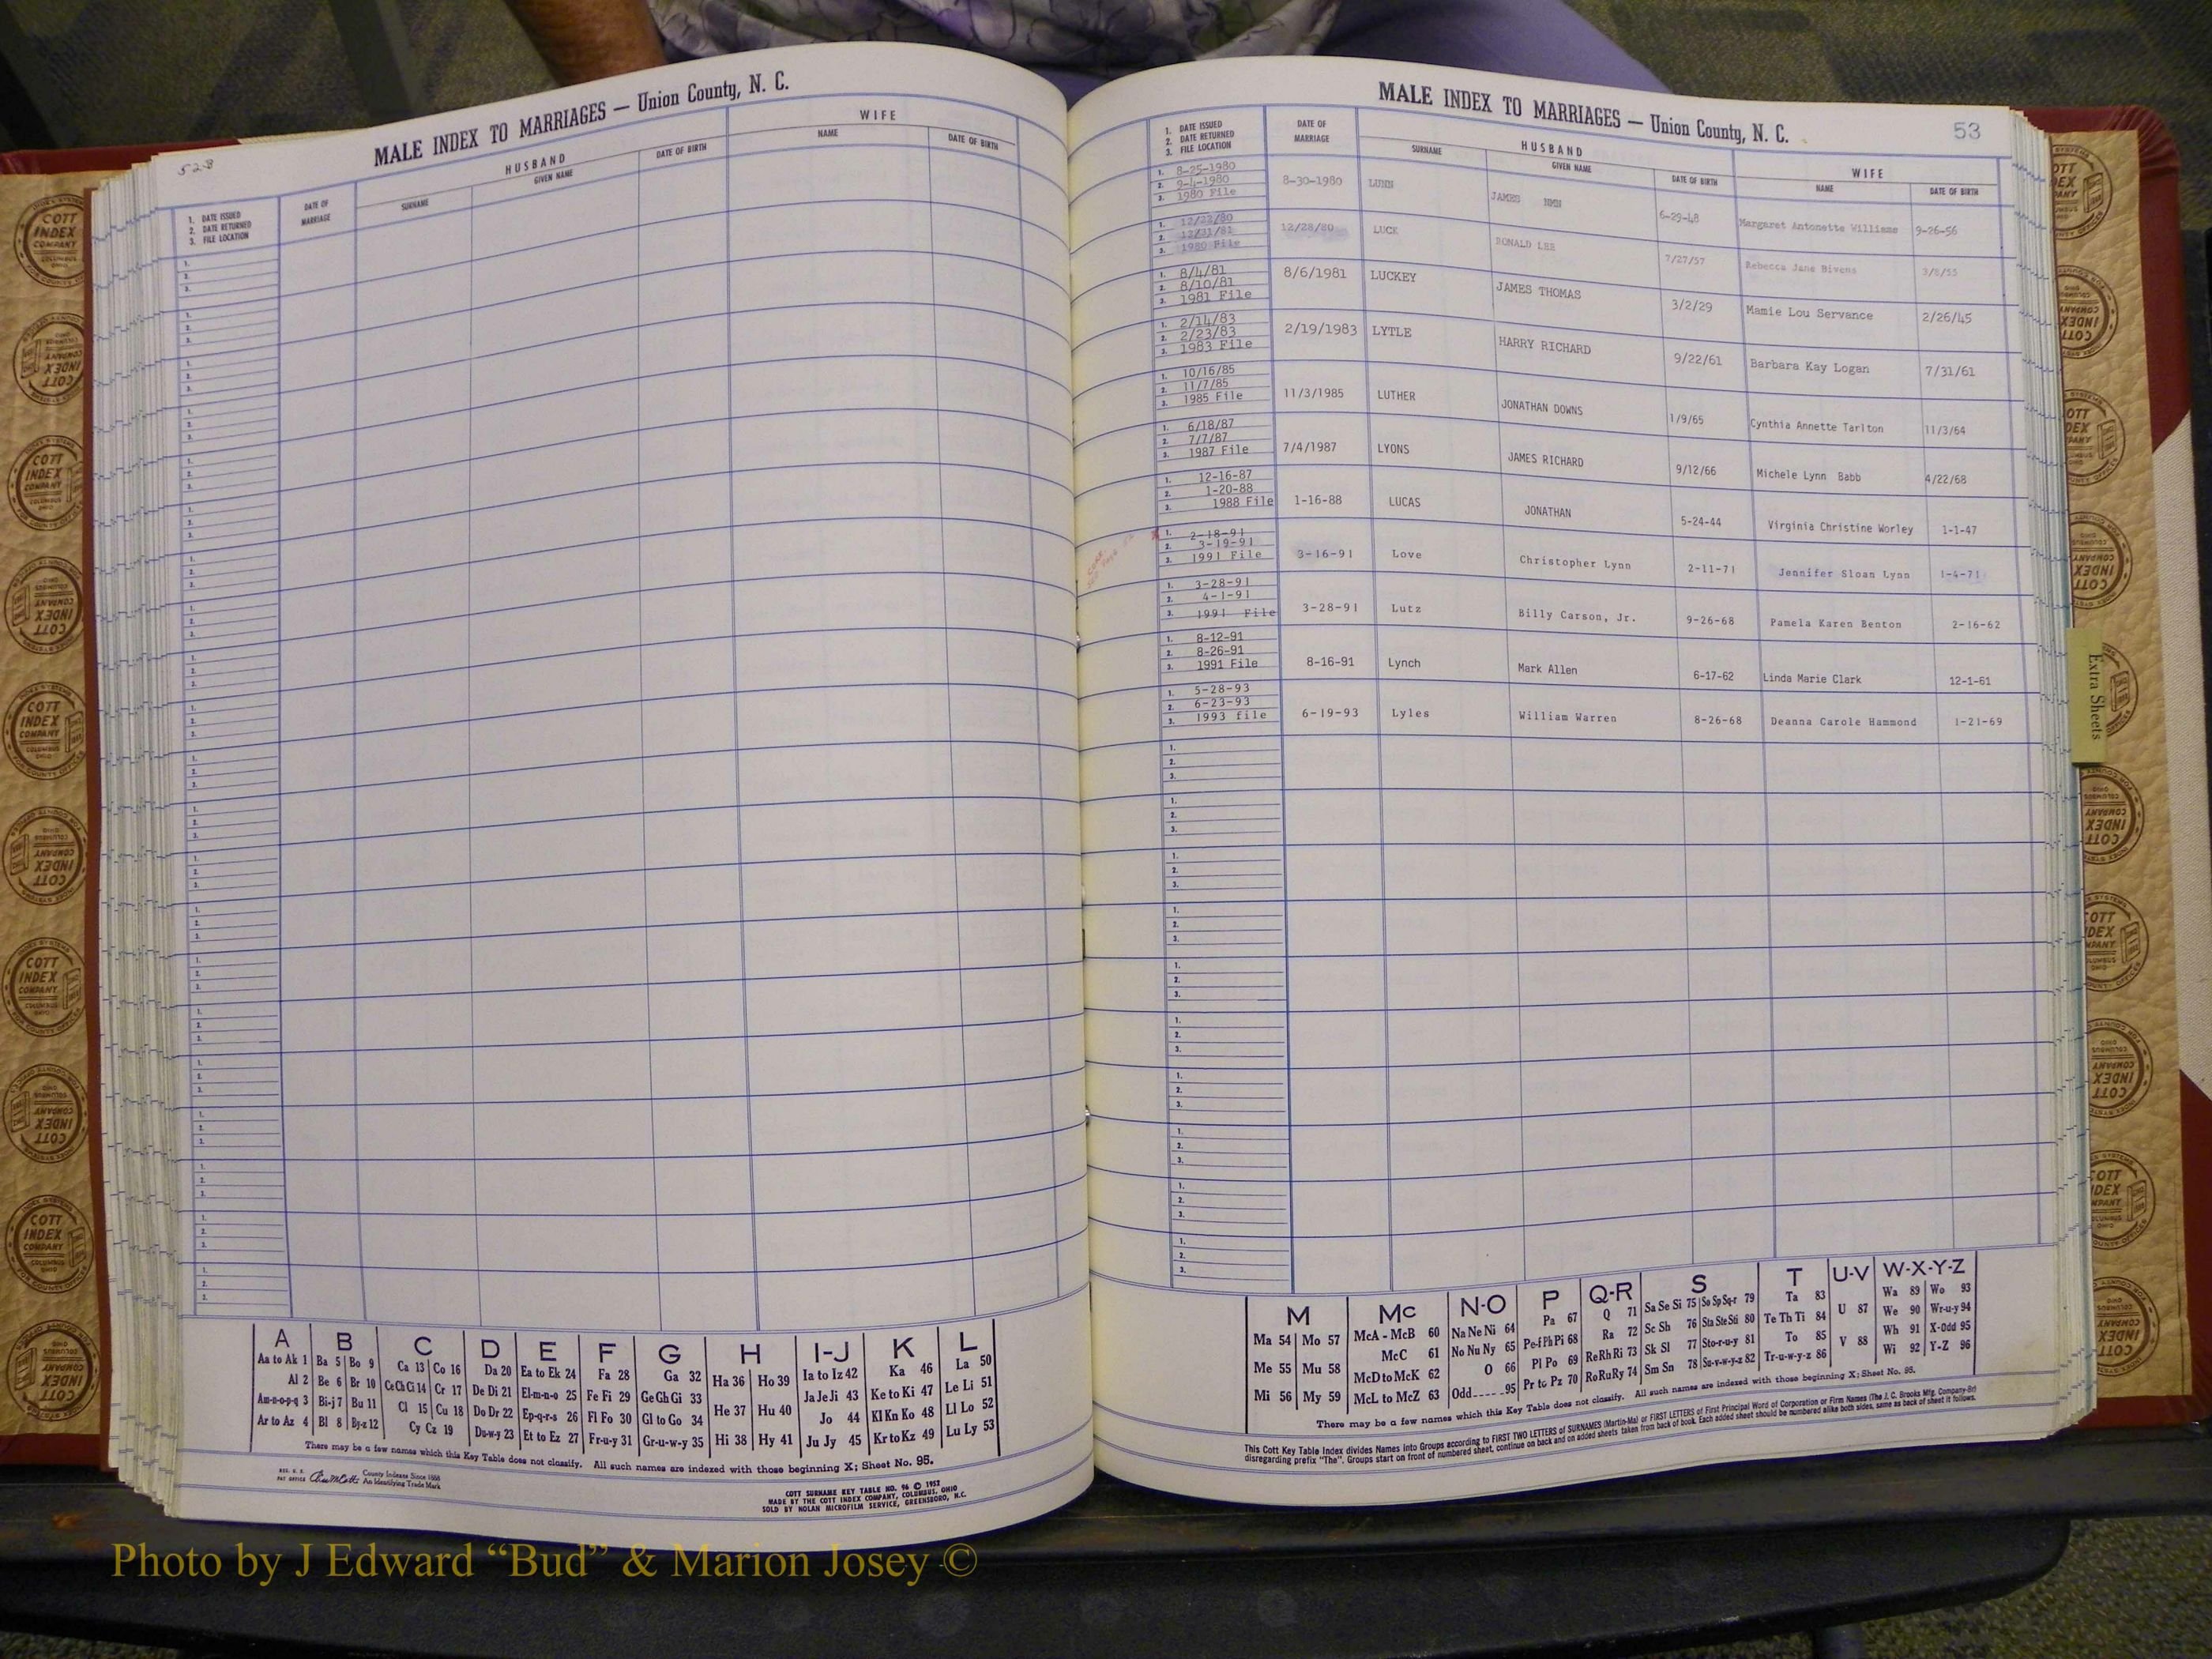 52-B
MALE INDEX TO MARRIAGES — Union County, N. C.
HUSBAND WIFE
1. DATE ISSUED
2. DATE RETURNED
3. FILE LOCATION
DATE OF MARRIAGE SURNAME GIVEN NAME DATE OF BIRTH NAME DATE OF BIRTH
A B C D E F G H I-J K L
Aa to Ak 1 Ba 5 Bo 9 Ca 13 Co 16 Da 20 Ea to Ek 24 Fa 28 Ga 32 Ha 36 Ho 39 Ia to Iz 42 Ka 46 La 50
Al 2 Be 6 Br 10 Ce Ch Ci 14 Cr 17 De Di 21 El-m-n-o 25 Fe Fi 29 Ge Gh Gi 33 He 37 Hu 40 Ja Je Ji 43 Ke to Ki 47 Le Li 51
Am-n-o-p-q 3 Bi-j 7 Bu 11 Cl 15 Cu 18 Do Dr 22 Ep-q-r-s 26 Fl Fo 30 Gl to Go 34 Hi 38 Hy 41 Jo 44 Kl Kn Ko 48 Ll Lo 52
Ar to Az 4 Bl 8 By-z 12 Cy Cz 19 Du-w-y 23 Et to Ez 27 Fr-u-y 31 Gr-u-w-y 35 Ju Jy 45 Kr to Kz 49 Lu Ly 53
There may be a few names which this Key Table does not classify. All such names are indexed with those beginning X; Sheet No. 95.
County Indexes Since 1888
An Identifying Trade Mark
COTT SURNAME KEY TABLE NO. 96 © 1957
MADE BY THE COTT INDEX COMPANY, COLUMBUS, OHIO
SOLD BY NOLAN MICROFILM SERVICE, GREENSBORO, N.C.
MALE INDEX TO MARRIAGES — Union County, N. C.
53
1. DATE ISSUED
2. DATE RETURNED
3. FILE LOCATION
DATE OF MARRIAGE HUSBAND SURNAME GIVEN NAME DATE OF BIRTH WIFE NAME DATE OF BIRTH
1. 8-25-1980
2. 9-4-1980
3. 1980 File
8-30-1980 LUNN JAMES NMN 6-29-48 Margaret Antonette Williams 9-26-56
1. 12/22/80
2. 12/31/81
3. 1980 File
12/28/80 LUCK RONALD LEE 7/27/57 Rebecca Jane Bivens
1. 8/4/81
2. 8/10/81
3. 1981 File
8/6/1981 LUCKEY JAMES THOMAS 3/2/29 Mamie Lou Servance 2/26/45
1. 2/14/83
2. 2/23/83
3. 1983 File
2/19/1983 LYTLE HARRY RICHARD 9/22/61 Barbara Kay Logan 7/31/61
1. 10/16/85
2. 11/7/85
3. 1985 File
11/3/1985 LUTHER JONATHAN DOWNS 1/9/65 Cynthia Annette Tarlton 11/3/64
1. 6/18/87
2. 7/7/87
3. 1987 File
7/4/1987 LYONS JAMES RICHARD 9/12/66 Michele Lynn Babb 4/22/68
1. 12-16-87
2. 1-20-88
3. 1988 File
1-16-88 LUCAS JONATHAN 5-24-44 Virginia Christine Worley 1-1-47
1. 2-18-91
2. 3-19-91
3. 1991 File
3-16-91 Love Christopher Lynn 2-11-71 Jennifer Sloan Lynn 1-4-71
1. 3-28-91
2. 4-1-91
3. 1991 File
3-28-91 Lutz Billy Carson, Jr. 9-26-68 Pamela Karen Benton 2-16-62
1. 8-12-91
2. 8-26-91
3. 1991 File
8-16-91 Lynch Mark Allen 6-17-62 Linda Marie Clark 12-1-61
1. 5-28-93
2. 6-23-93
3. 1993 file
6-19-93 Lyles William Warren 8-26-68 Deanna Carole Hammond 1-21-69
Extra Sheets
M Mc N-O P Q-R S T U-V W-X-Y-Z
Ma 54 Mo 57 McA - McB 60 Na Ne Ni 64 Pa 67 Q 71 Sa Se Si 75 So Sp Sq-r 79 Ta 83 U 87 Wa 89 Wo 93
Me 55 Mu 58 McC 61 No Nu Ny 65 Pe-f Ph Pi 68 Ra 72 Sc Sh 76 Sta Ste Sti 80 Te Th Ti 84 V 88 We 90 Wr-u-y 94
Mi 56 My 59 McD to McK 62 O 66 Pl Po 69 Re Rh Ri 73 Sk Sl 77 Sto-r-u-y 81 To 85 Wh 91 X-Odd 95
McL to McZ 63 Odd 95 Pr to Pz 70 Ro Ru Ry 74 Sm Sn 78 Su-v-w-y-z 82 Tr-u-w-y-z 86 Wi 92 Y-Z 96
There may be a few names which this Key Table does not classify. All such names are indexed with those beginning X; Sheet No. 95.
This Cott Key Table Index divides Names into Groups according to FIRST TWO LETTERS of SURNAMES (Martin-Ma) or FIRST LETTERS of First Principal Word of Corporation or Firm Names (The J. C. Brooks Mfg. Company-Br)
disregarding prefix "The". Groups start on front of numbered sheet, continue on back and on added sheets taken from back of book. Each added sheet should be numbered alike both sides, same as back of sheet it follows.
COTT INDEX COMPANY
Photo by J Edward “Bud” & Marion Josey ©